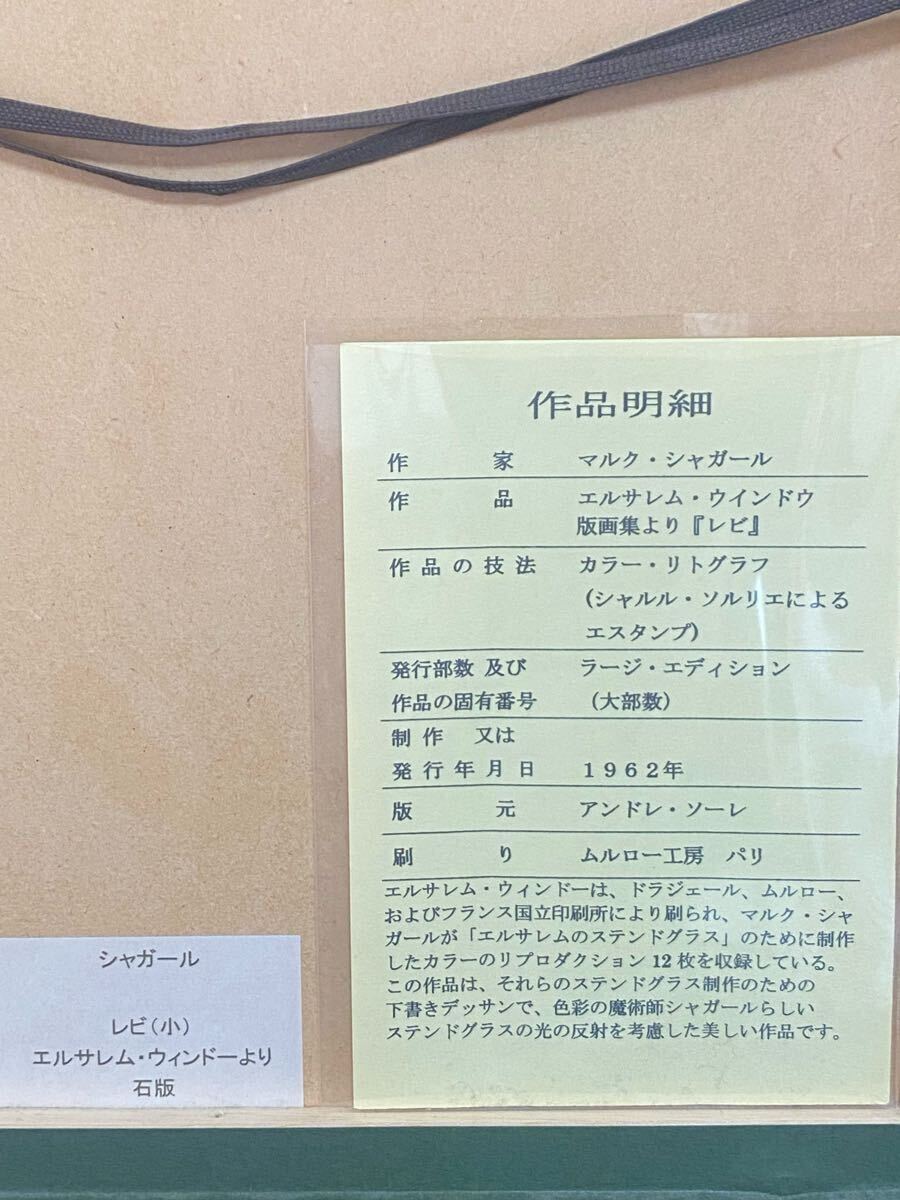 作品明細
作家 マルク・シャガール
作品 エルサレム・ウインドウ
版画集より『レビ』
作品の技法 カラー・リトグラフ
(シャルル・ソルリエによる
エスタンプ)
発行部数 及び ラージ・エディション
作品の固有番号 (大部数)
制作 又は
発行年月日 1962年
版元 アンドレ・ソーレ
刷り ムルロー工房 パリ
エルサレム・ウィンドーは、ドラジェール、ムルロー、
およびフランス国立印刷所により刷られ、マルク・シャ
ガールが「エルサレムのステンドグラス」のために制作
したカラーのリプロダクション12枚を収録している。
この作品は、それらのステンドグラス制作のための
下書きデッサンで、色彩の魔術師シャガールらしい
ステンドグラスの光の反射を考慮した美しい作品です。
シャガール
レビ(小)
エルサレム・ウィンドーより
石版